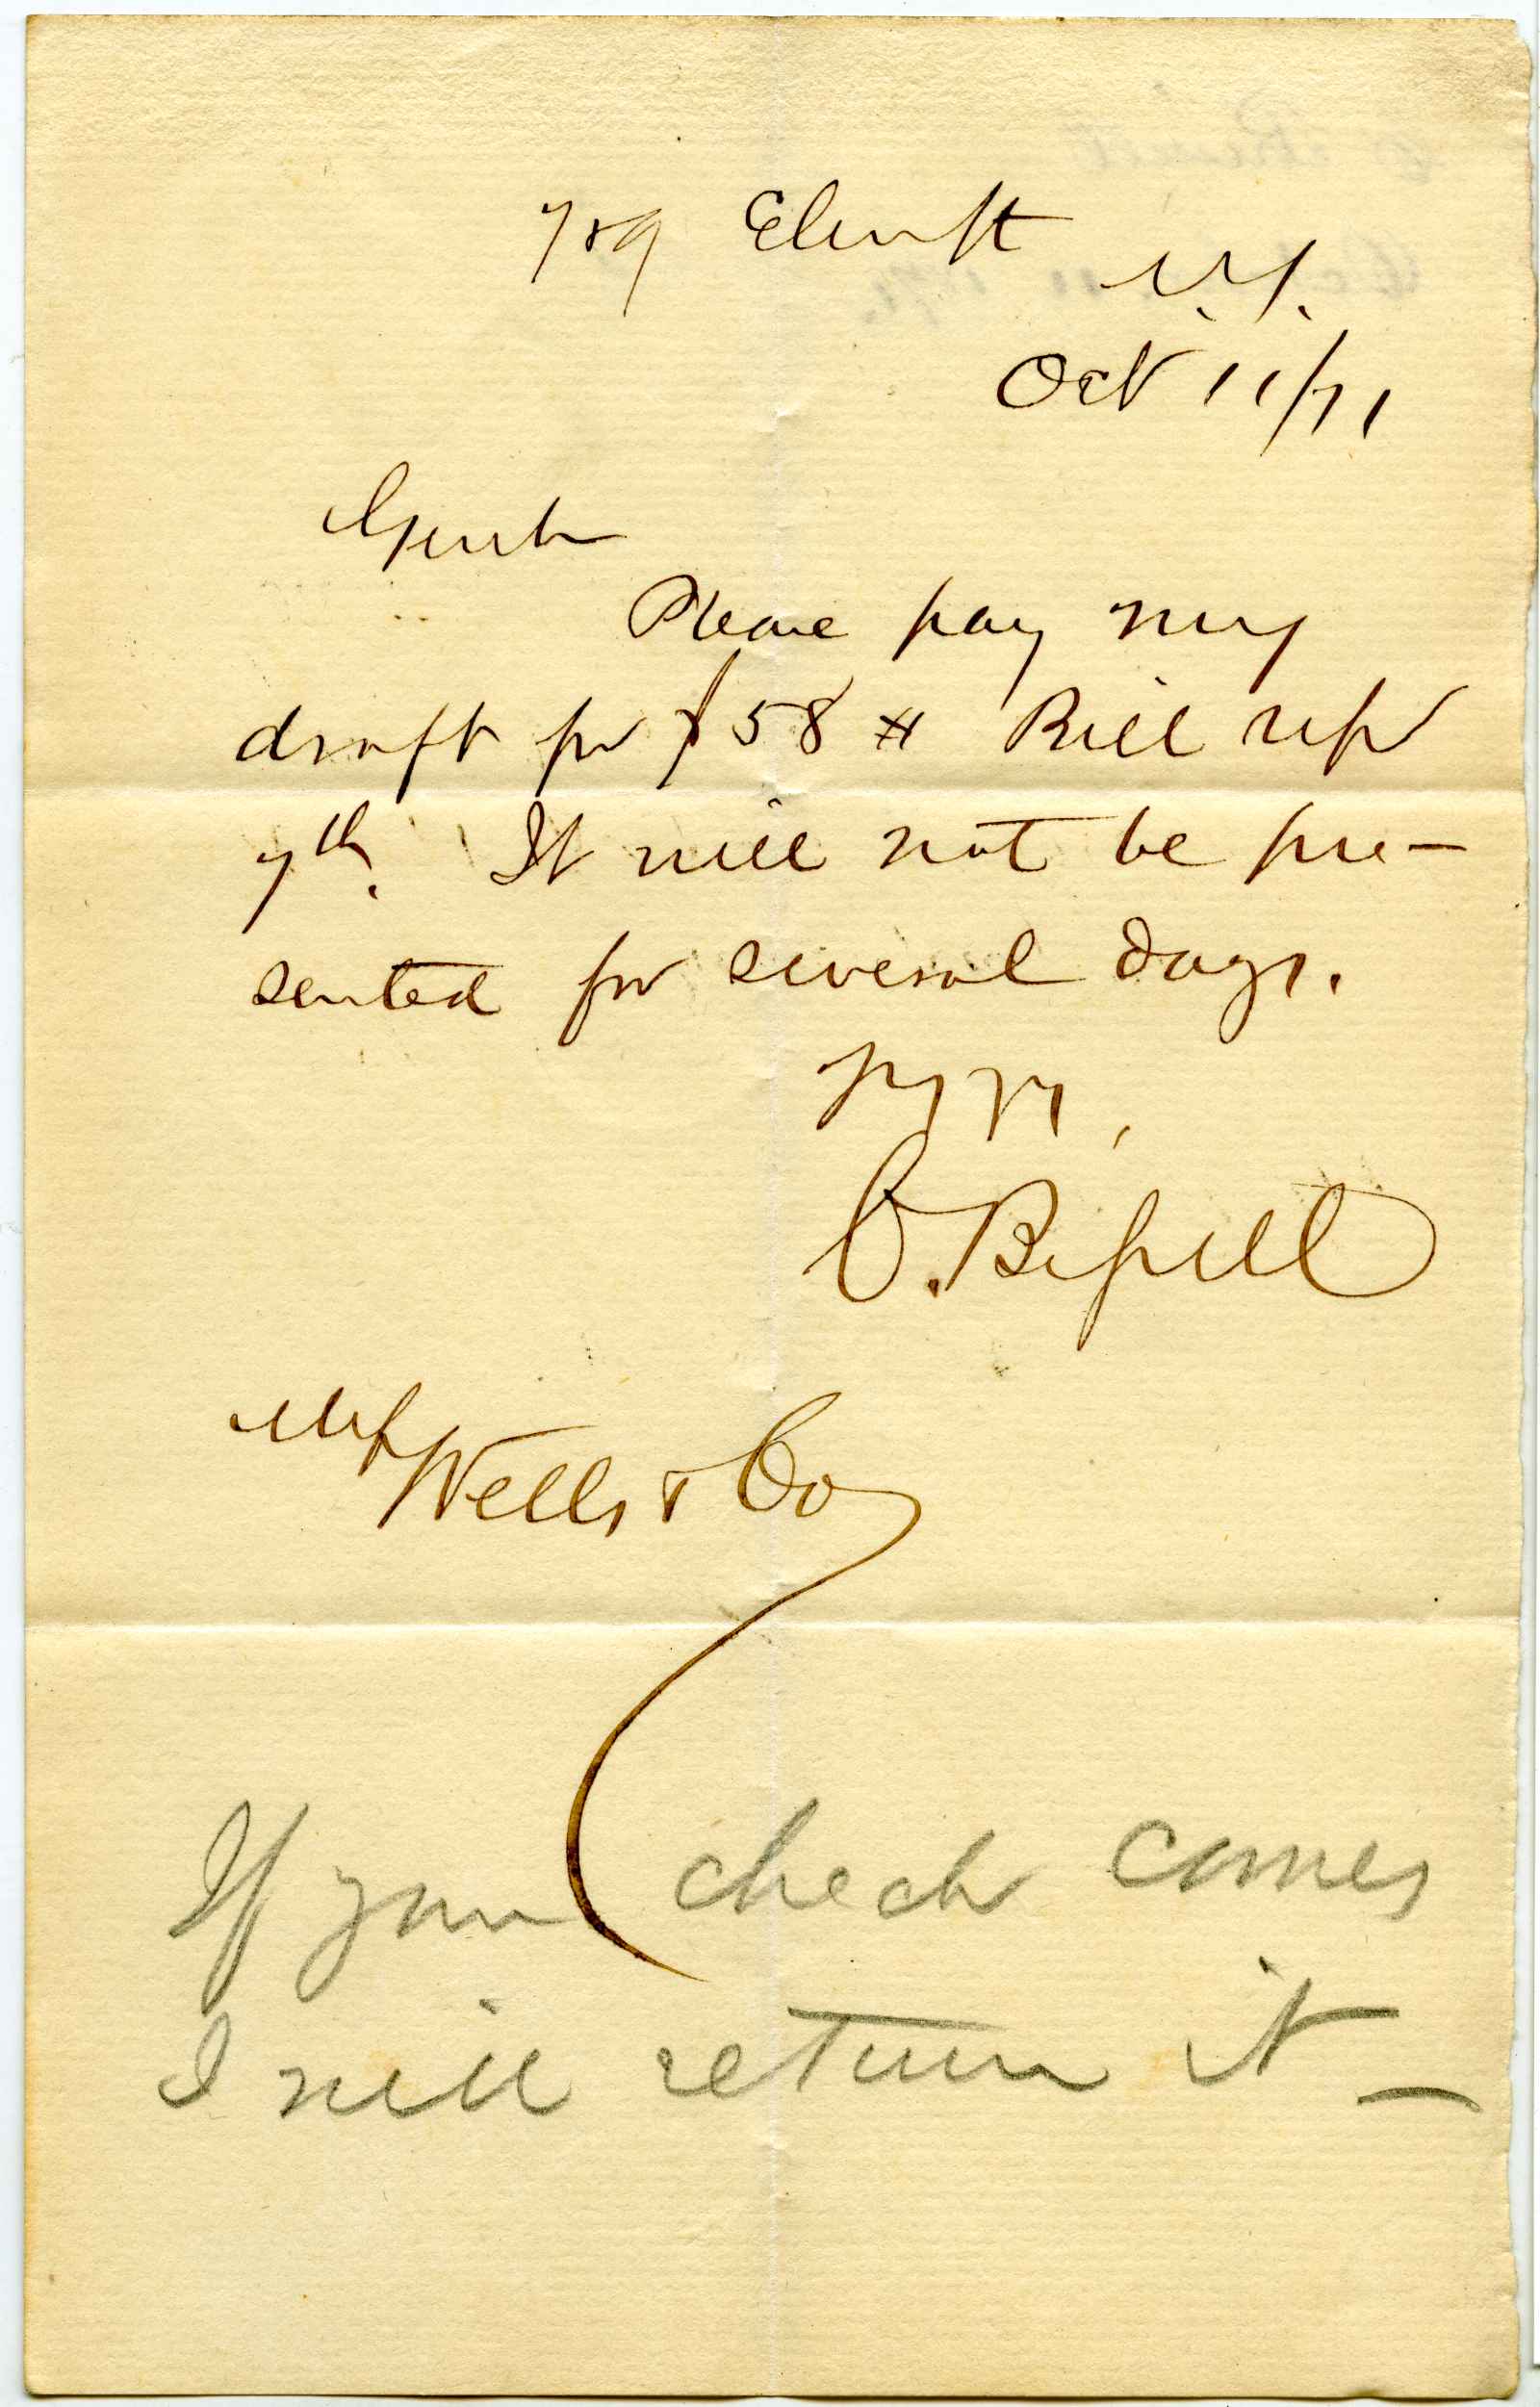 7&9 Elm St
N.Y.
Oct 11/71
Gents
Please pay my
draft for $58 # Bill
7th. It will not be pre-
sented for several days.
Wells & Co
If your check comes
I will return it —